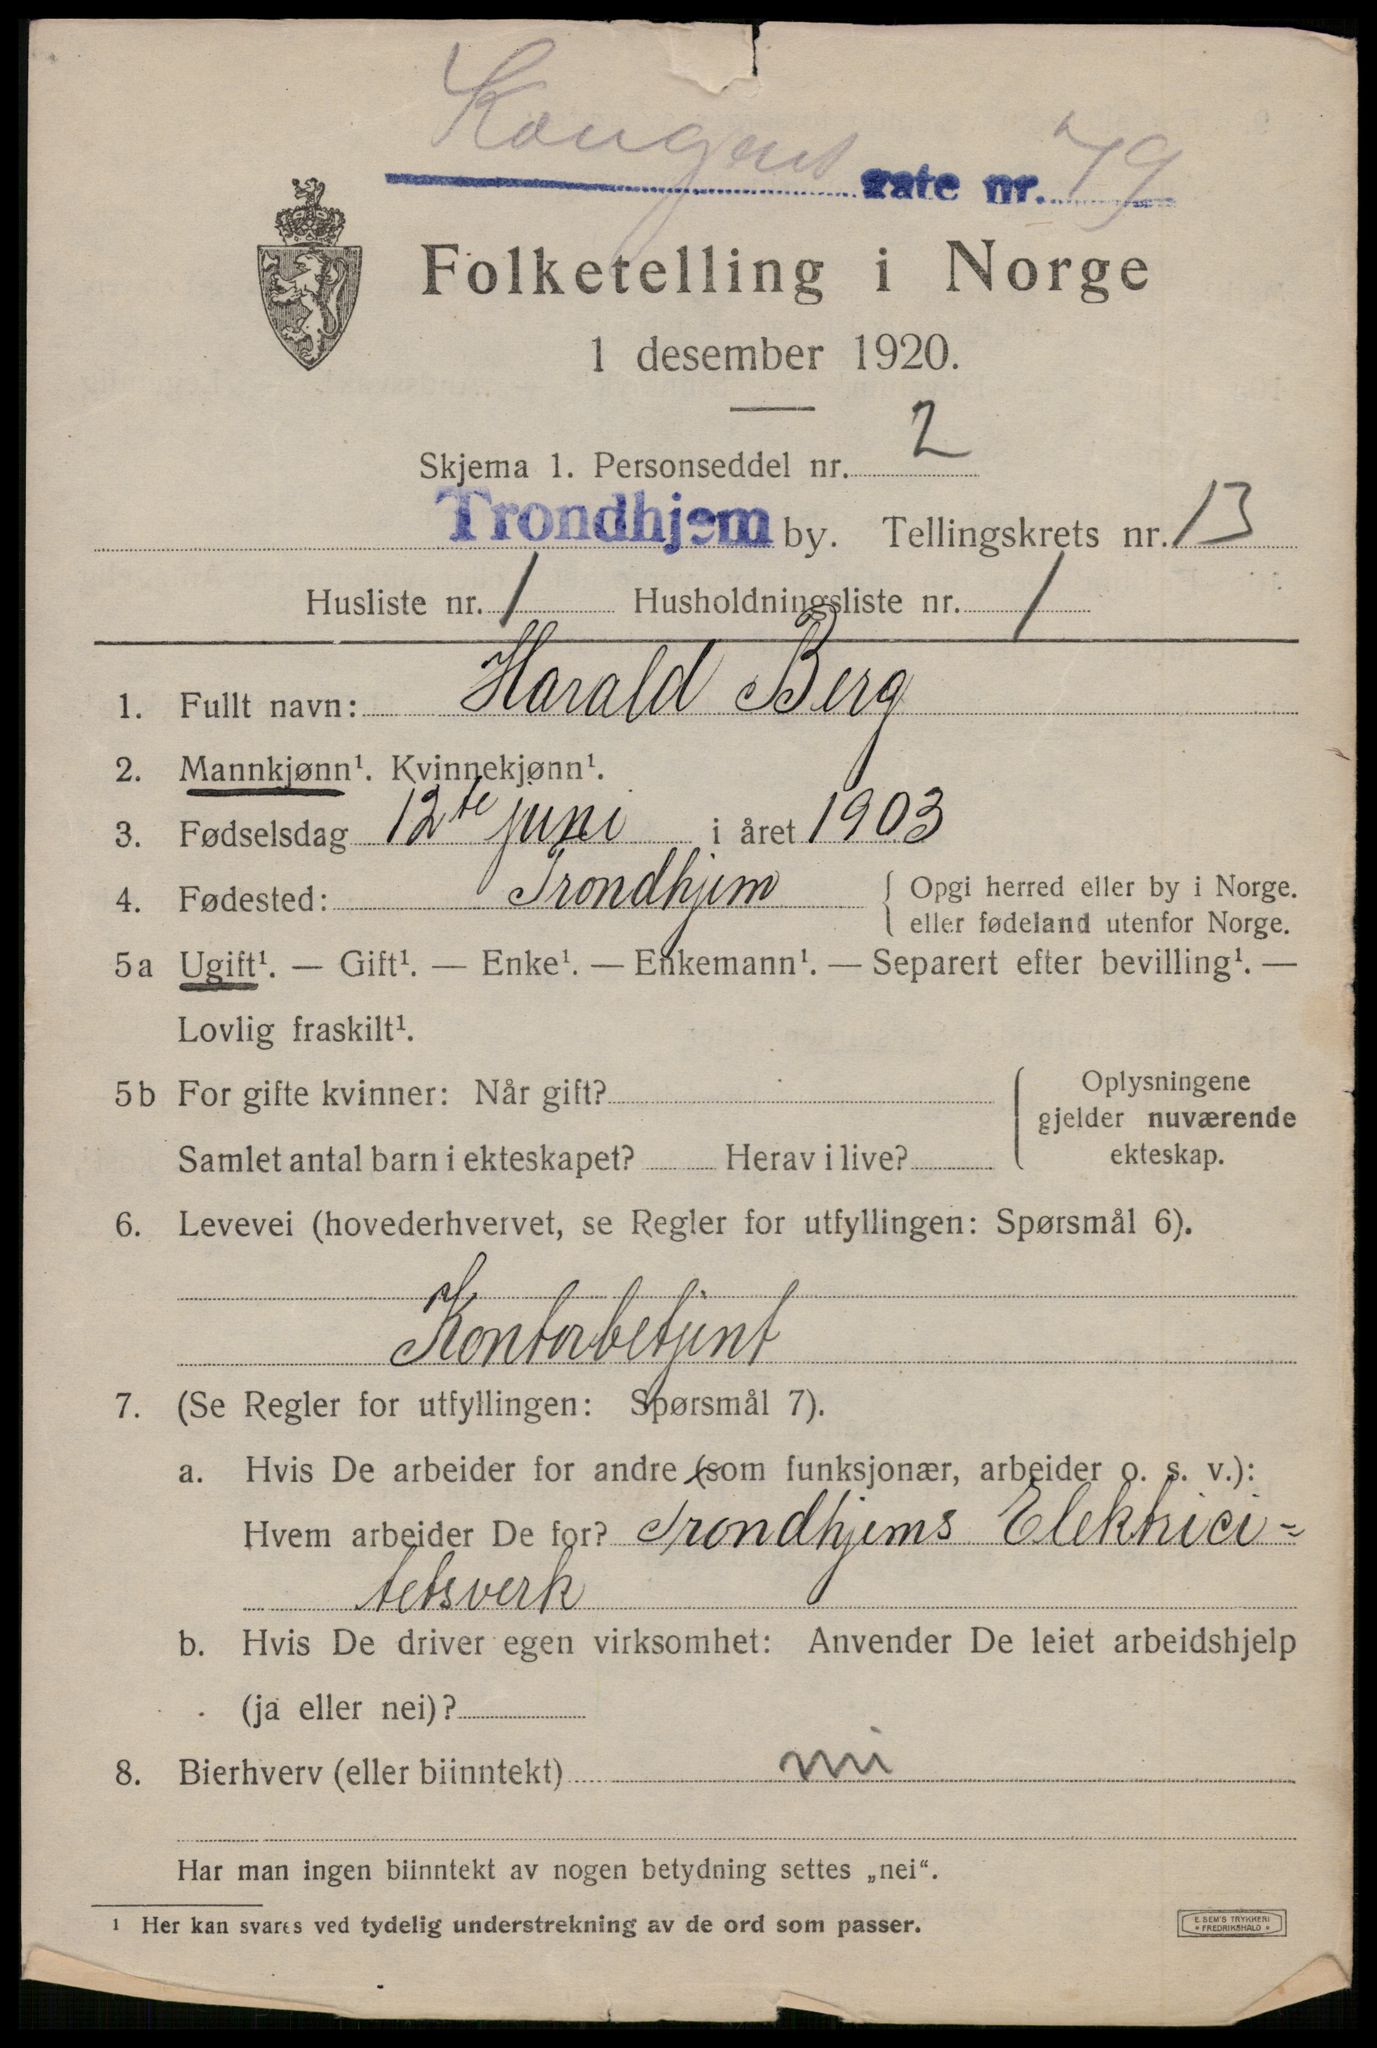 Kongens gate nr. 79
Folketelling i Norge
1 desember 1920.
Skjema 1. Personseddel nr. 2
Trondhjem by. Tellingskrets nr. 13
Husliste nr. 1 Husholdningsliste nr. 1
1. Fullt navn: Harald Berg
2. Mannkjønn¹. Kvinnekjønn¹.
3. Fødselsdag 12te juni i året 1903
4. Fødested: Trondhjem { Opgi herred eller by i Norge.
eller fødeland utenfor Norge.
5a Ugift¹. — Gift¹. — Enke¹. — Enkemann¹. — Separert efter bevilling¹. —
Lovlig fraskilt¹.
5b For gifte kvinner: Når gift?
Samlet antal barn i ekteskapet? Herav i live?
Oplysningene
gjelder nuværende
ekteskap.
6. Levevei (hovederhvervet, se Regler for utfyllingen: Spørsmål 6).
Kontorbetjent
7. (Se Regler for utfyllingen: Spørsmål 7).
a. Hvis De arbeider for andre (som funksjonær, arbeider o. s. v.):
Hvem arbeider De for? Trondhjems Elektrici-
tetsverk
b. Hvis De driver egen virksomhet: Anvender De leiet arbeidshjelp
(ja eller nei)?
8. Bierhverv (eller biinntekt) nei
Har man ingen biinntekt av nogen betydning settes „nei“.
¹ Her kan svares ved tydelig understrekning av de ord som passer.
E. SEM'S TRYKKERI
* FREDRIKSHALD *